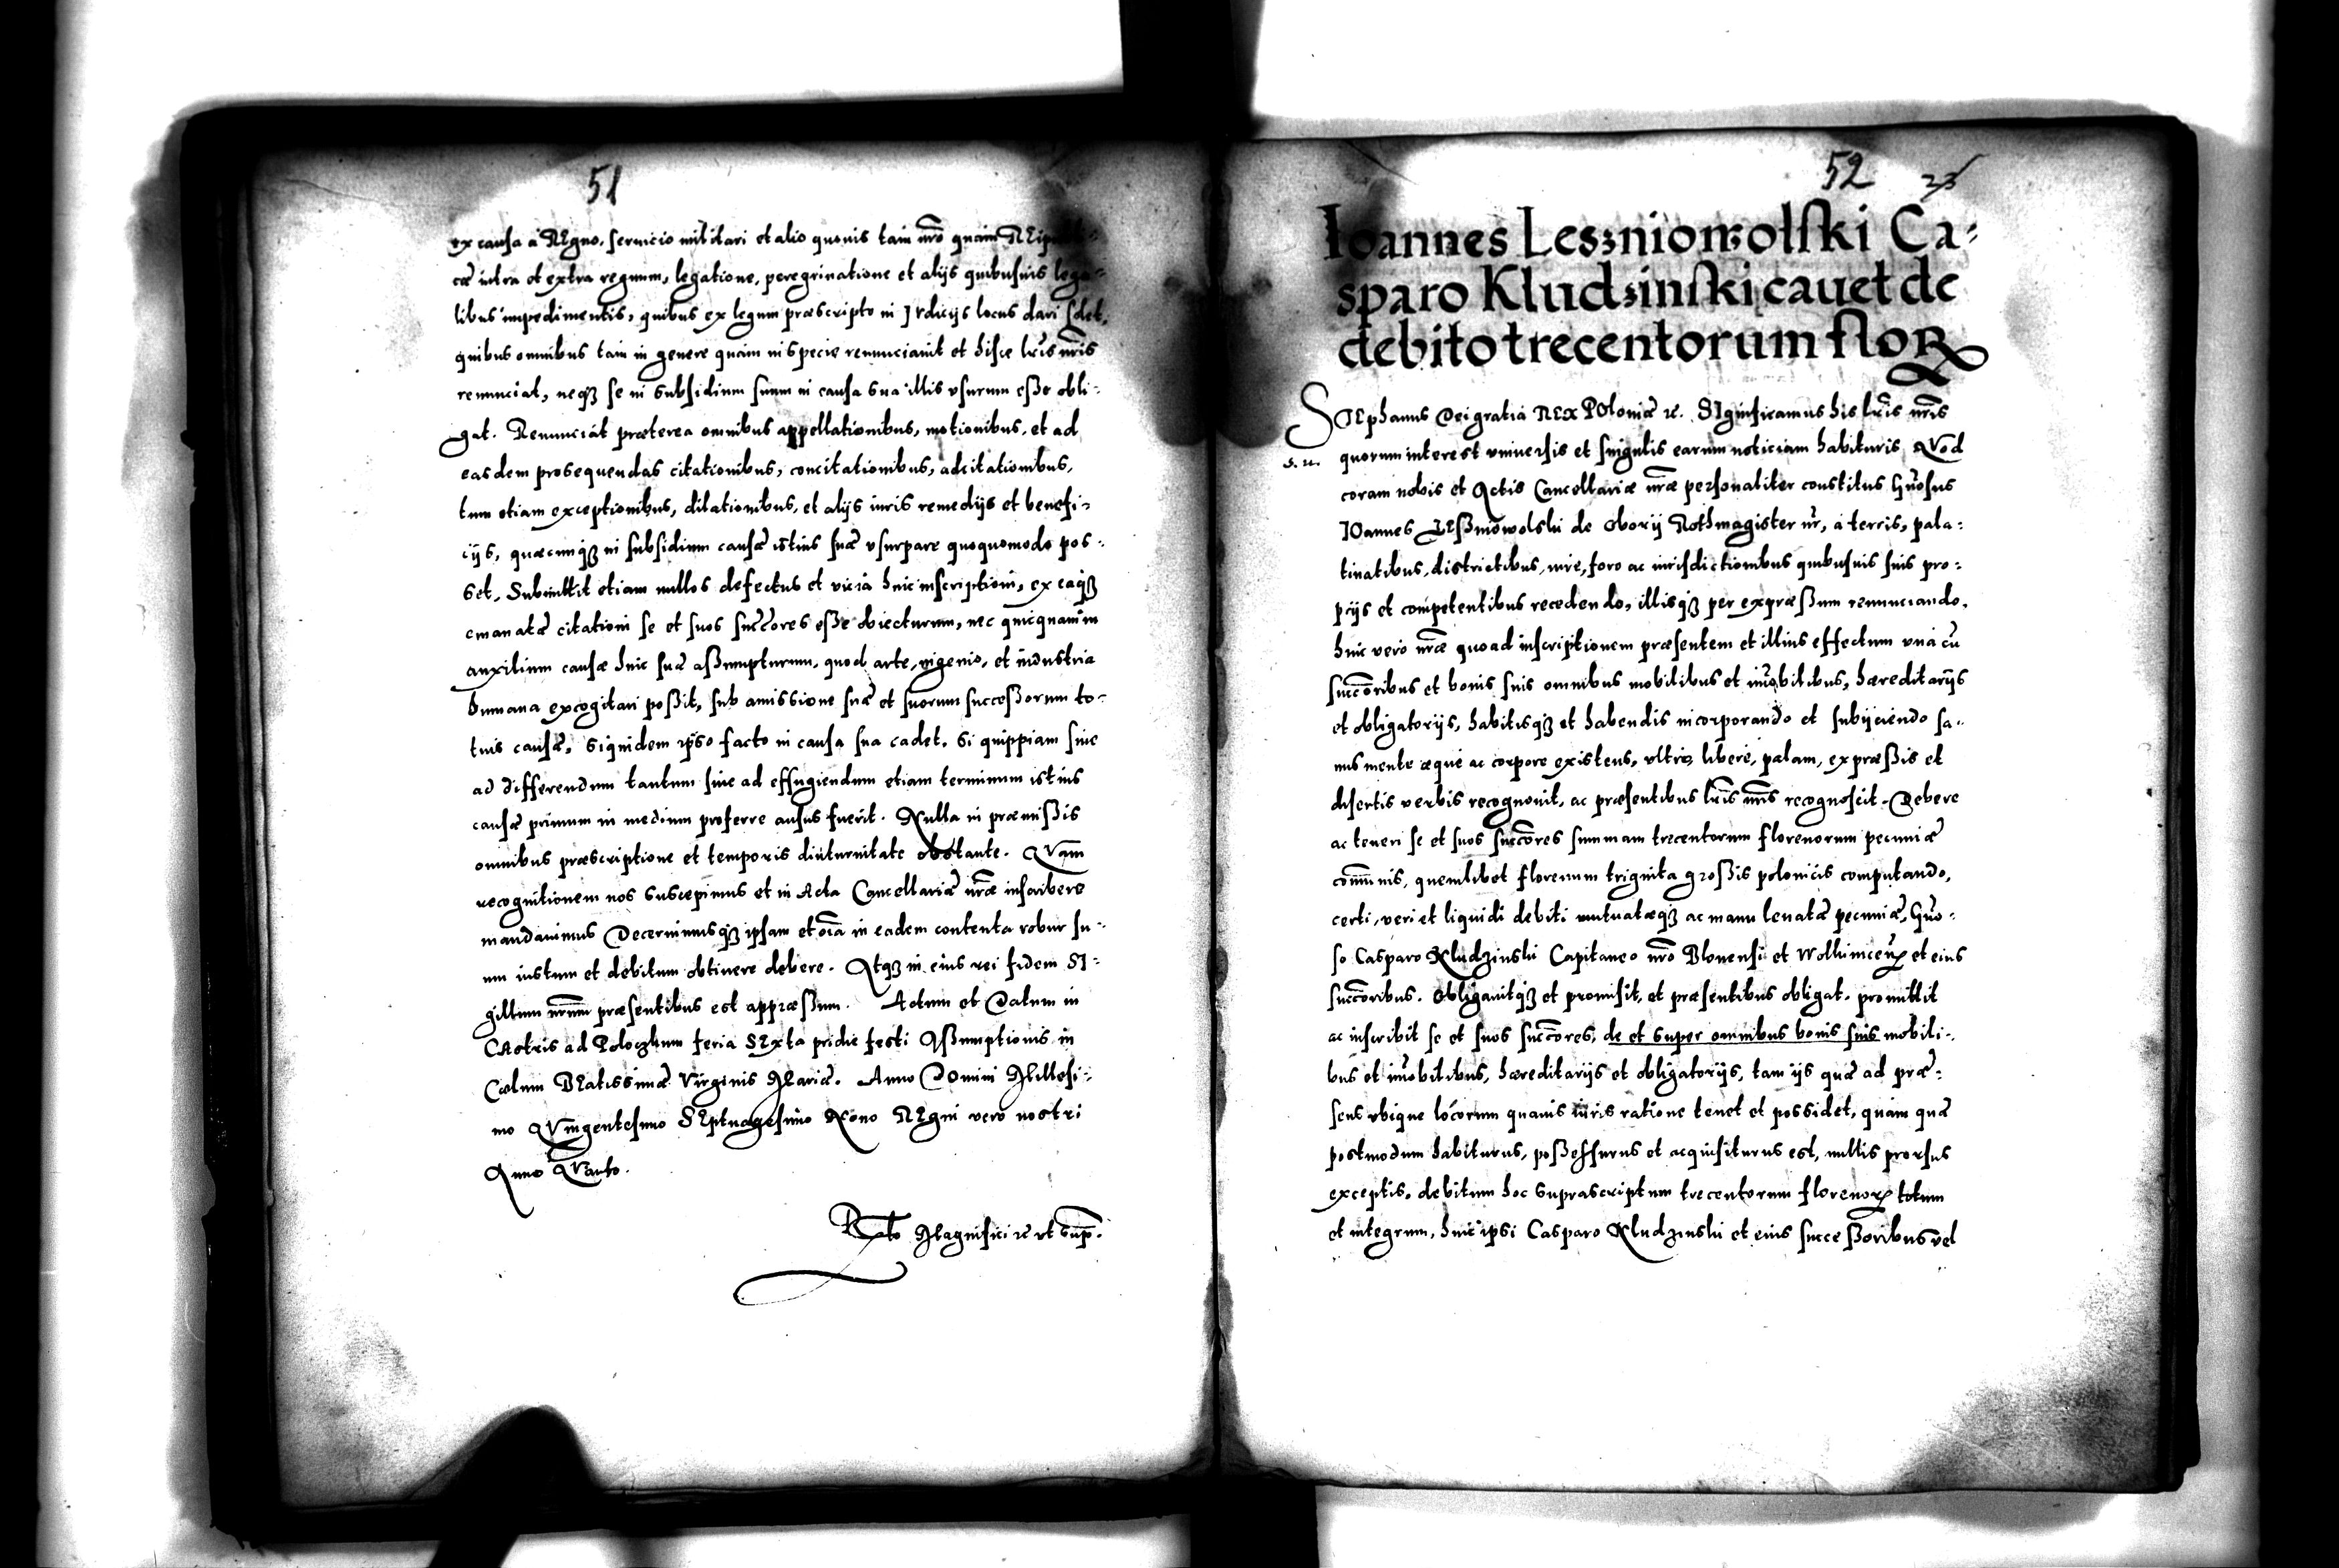 51
ex causa a REgno, seruicio militari et alio quouis tam nrō quàm REipubli-
cæ intra et extra regnum, legatione, peregrinatione et alijs quibusuis lega-
libus impedimentis, quibus ex legum præscripto in Iudicijs locus dari solet,
quibus omnibus tam in genere quàm in specie renunciauit et hisce lrīs nrīs
renunciat, neqʒ se in subsidium suum in causa sua illis vsurum esße obli-
gat. Renunciat præterea omnibus appellationibus, motionibus, et ad
easdem prosequendas citationibus, concitationibus, adcitationibus,
tum etiam exceptionibus, dilationibus, et alijs iuris remedijs et benefi-
cijs, quæcunqʒ in subsidium causæ istius suæ vsurpare quoquomodo pos-
set. Submittit etiam nullos defectus et vicia huic inscriptioni, ex eaqʒ
emanatæ citationi se et suos succōres esße obiecturum, nec quicquam in
auxilium causæ huic suæ aßumpturum, quod arte, ingenio, et industria
humana excogitari poßit, sub amissione suæ et suorum succeßorum to-
tius causæ, siquidem ipso facto in causa sua cadet, si quippiam siue
ad differendum tantum siue ad effugiendum etiam terminum istius
causæ primum in medium proferre ausus fuerit. Nulla in præmißis
omnibus præscriptione et temporis diuturnitate obstante. QVam
recognitionem nos suscepimus et in Acta Cancellariæ nrǣ inscribere
mandauimus Decernimusqʒ ipsam et oīa in eadem contenta robur su-
um iustum et debitum obtinere debere. Atqʒ in eius rei fidem SI-
gillum nrūm præsentibus est appræßum. Actum et Datum in
CAstris ad Poloczkum feria SExta pridie festi Aßumptionis in
Cælum BEatissimæ Virginis Mariæ. Anno DOmini Millesi-
mo QVingentesimo SEptuagesimo Nono REgni vero nostri
Anno QVarto.
Rtō Magnifici &c vt sup̄.
52 23
Ioannes Leszniowolski Ca-
sparo Kludzinski cauet de
debito trecentorum floꝝ
STEphanus Dei gratia REX POloniæ &c. SIgnificamus his lrīs nrīs
quorum interest vniuersis et singulis earum noticiam habituris QVod
s. n.
coram nobis et Actis Cancellariæ nrǣ personaliter constitus Gn̄osus
IOannes LEßniowolski de Obory Rothmagister nr̄, à terris, pala-
tinatibus, districtibus, iure, foro ac iurisdictionibus quibusuis suis pro-
prijs et competentibus recedendo, illisqʒ per expræßum renunciando,
huic vero nrǣ quoad inscriptionem præsentem et illius effectum vnà cū
succōribus et bonis suis omnibus mobilibus et im̄obilibus, hæreditarijs
et obligatorijs, habitisqʒ et habendis incorporando et subijciendo sa-
nus mente æque ac corpore existens, vltro, libere, palam, expræßis et
disertis verbis recognouit, ac præsentibus lrīs nrīs recognoscit. Debere
ac teneri se et suos succōres summam trecentorum florenorum pecuniæ
com̄unis, quemlibet florenum triginta großis polonicis computando,
certi, veri et liquidi debiti mutuatæqʒ ac manu leuatæ pecuniæ, Gn̄o-
so Casparo Kludzinski Capitaneo nrō Blonensi et Wolkinicen̄ et eius
succōribus. Obligauitqʒ et promisit, et præsentibus obligat, promittit
ac inscribit se et suos succōres, de et super omnibus bonis suis mobili-
bus et im̄obilibus, hæreditarijs et obligatorijs, tam ijs quæ ad præ-
sens vbique locorum quauis iuris ratione tenet et possidet, quàm quæ
postmodum habiturus, poßessurus et acquisiturus est, nullis prorsus
exceptis, debitum hoc suprascriptum trecentorum florenoꝝ totum
et integrum, huic ipsi Casparo Kludzinski et eius succeßoribus vel